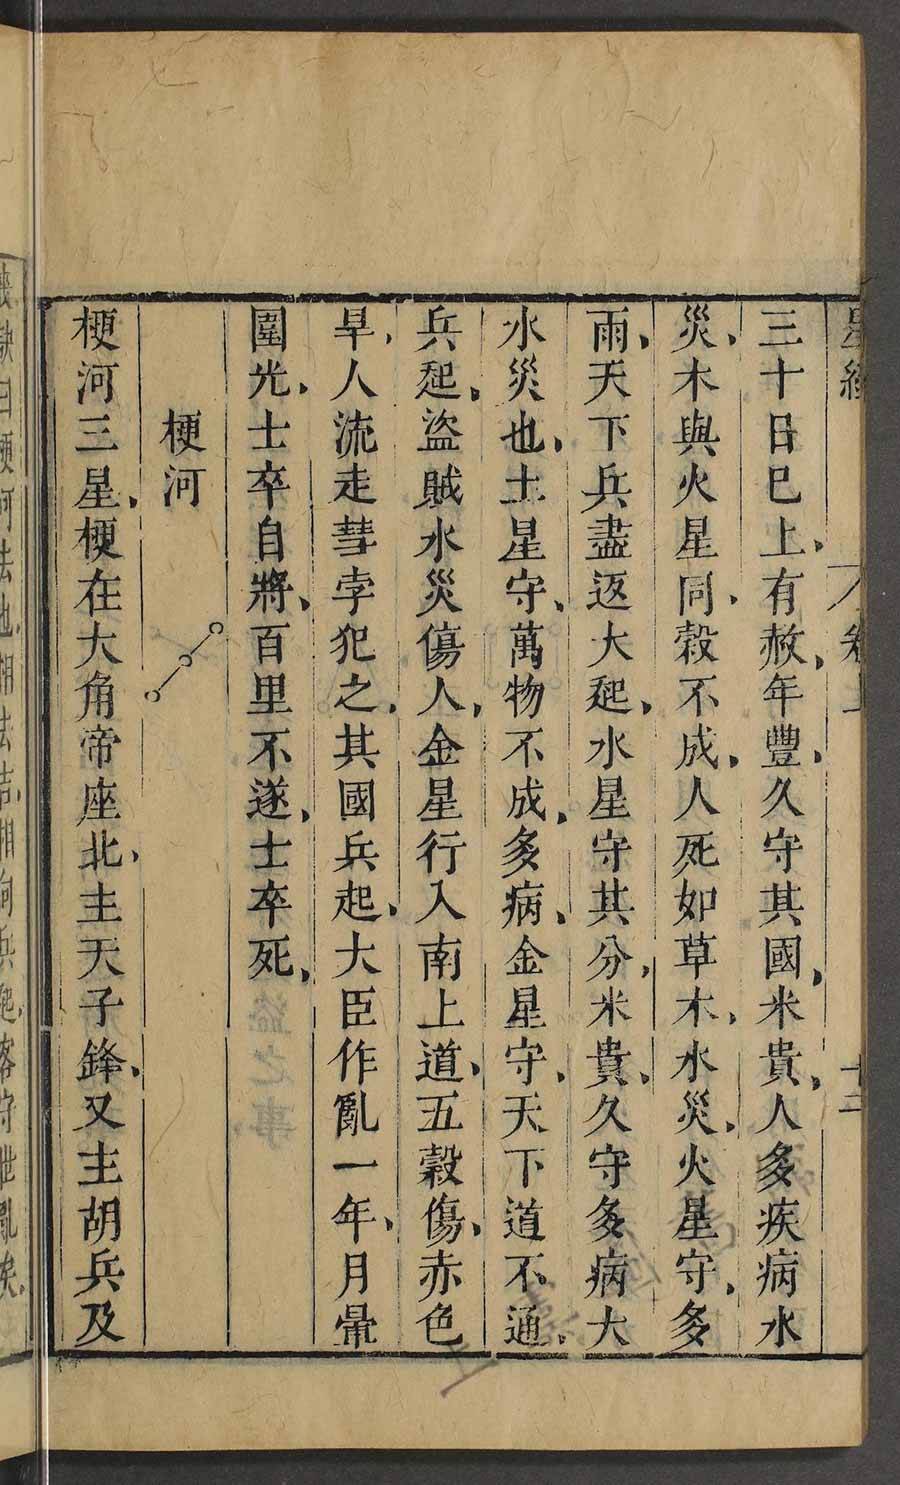 星經 卷上 十二
三十日巳上、有赦、年豐、久守其國、米貴、人多疾病水
災、木與火星同、穀不成、人死如草木、水災、火星守、多
雨、天下兵盡返大起、水星守其分、米貴、久守多病大
水災也、土星守、萬物不成、多病、金星守、天下道不通、
兵起、盜賊水災傷人、金星行入南上道、五穀傷、赤色
旱、人流走彗孛犯之、其國兵起、大臣作亂一年、月暈
圍光、士卒自將、百里不遂、士卒死、
梗河
梗河三星、梗在大角帝座北、主天子鋒、又主胡兵及